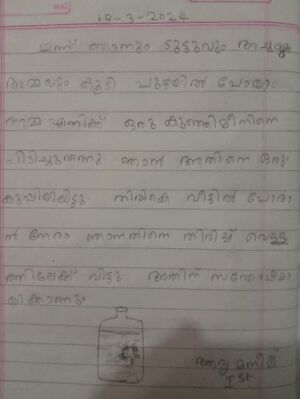 19-3-2024
ഇന്ന് ഞാനും ടുട്ടുവും അച്ഛനും
അമ്മയും കൂടി പുഴയിൽ പോയി.
അമ്മ എനിക്ക് ഒരു കുഞ്ഞിമീനിനെ
പിടിച്ചുതന്നു ഞാൻ അതിനെ ഒരു
കുപ്പിയിലിട്ടു. തിരികെ വീട്ടിൽ പോരാ
ൻ നേരം ഞാനതിനെ തിരിച്ച് വെള്ള
ത്തിലേക്ക് വിട്ടു. അതിന് സന്തോഷമാ
യിക്കാണും
മനീഷ്
I st